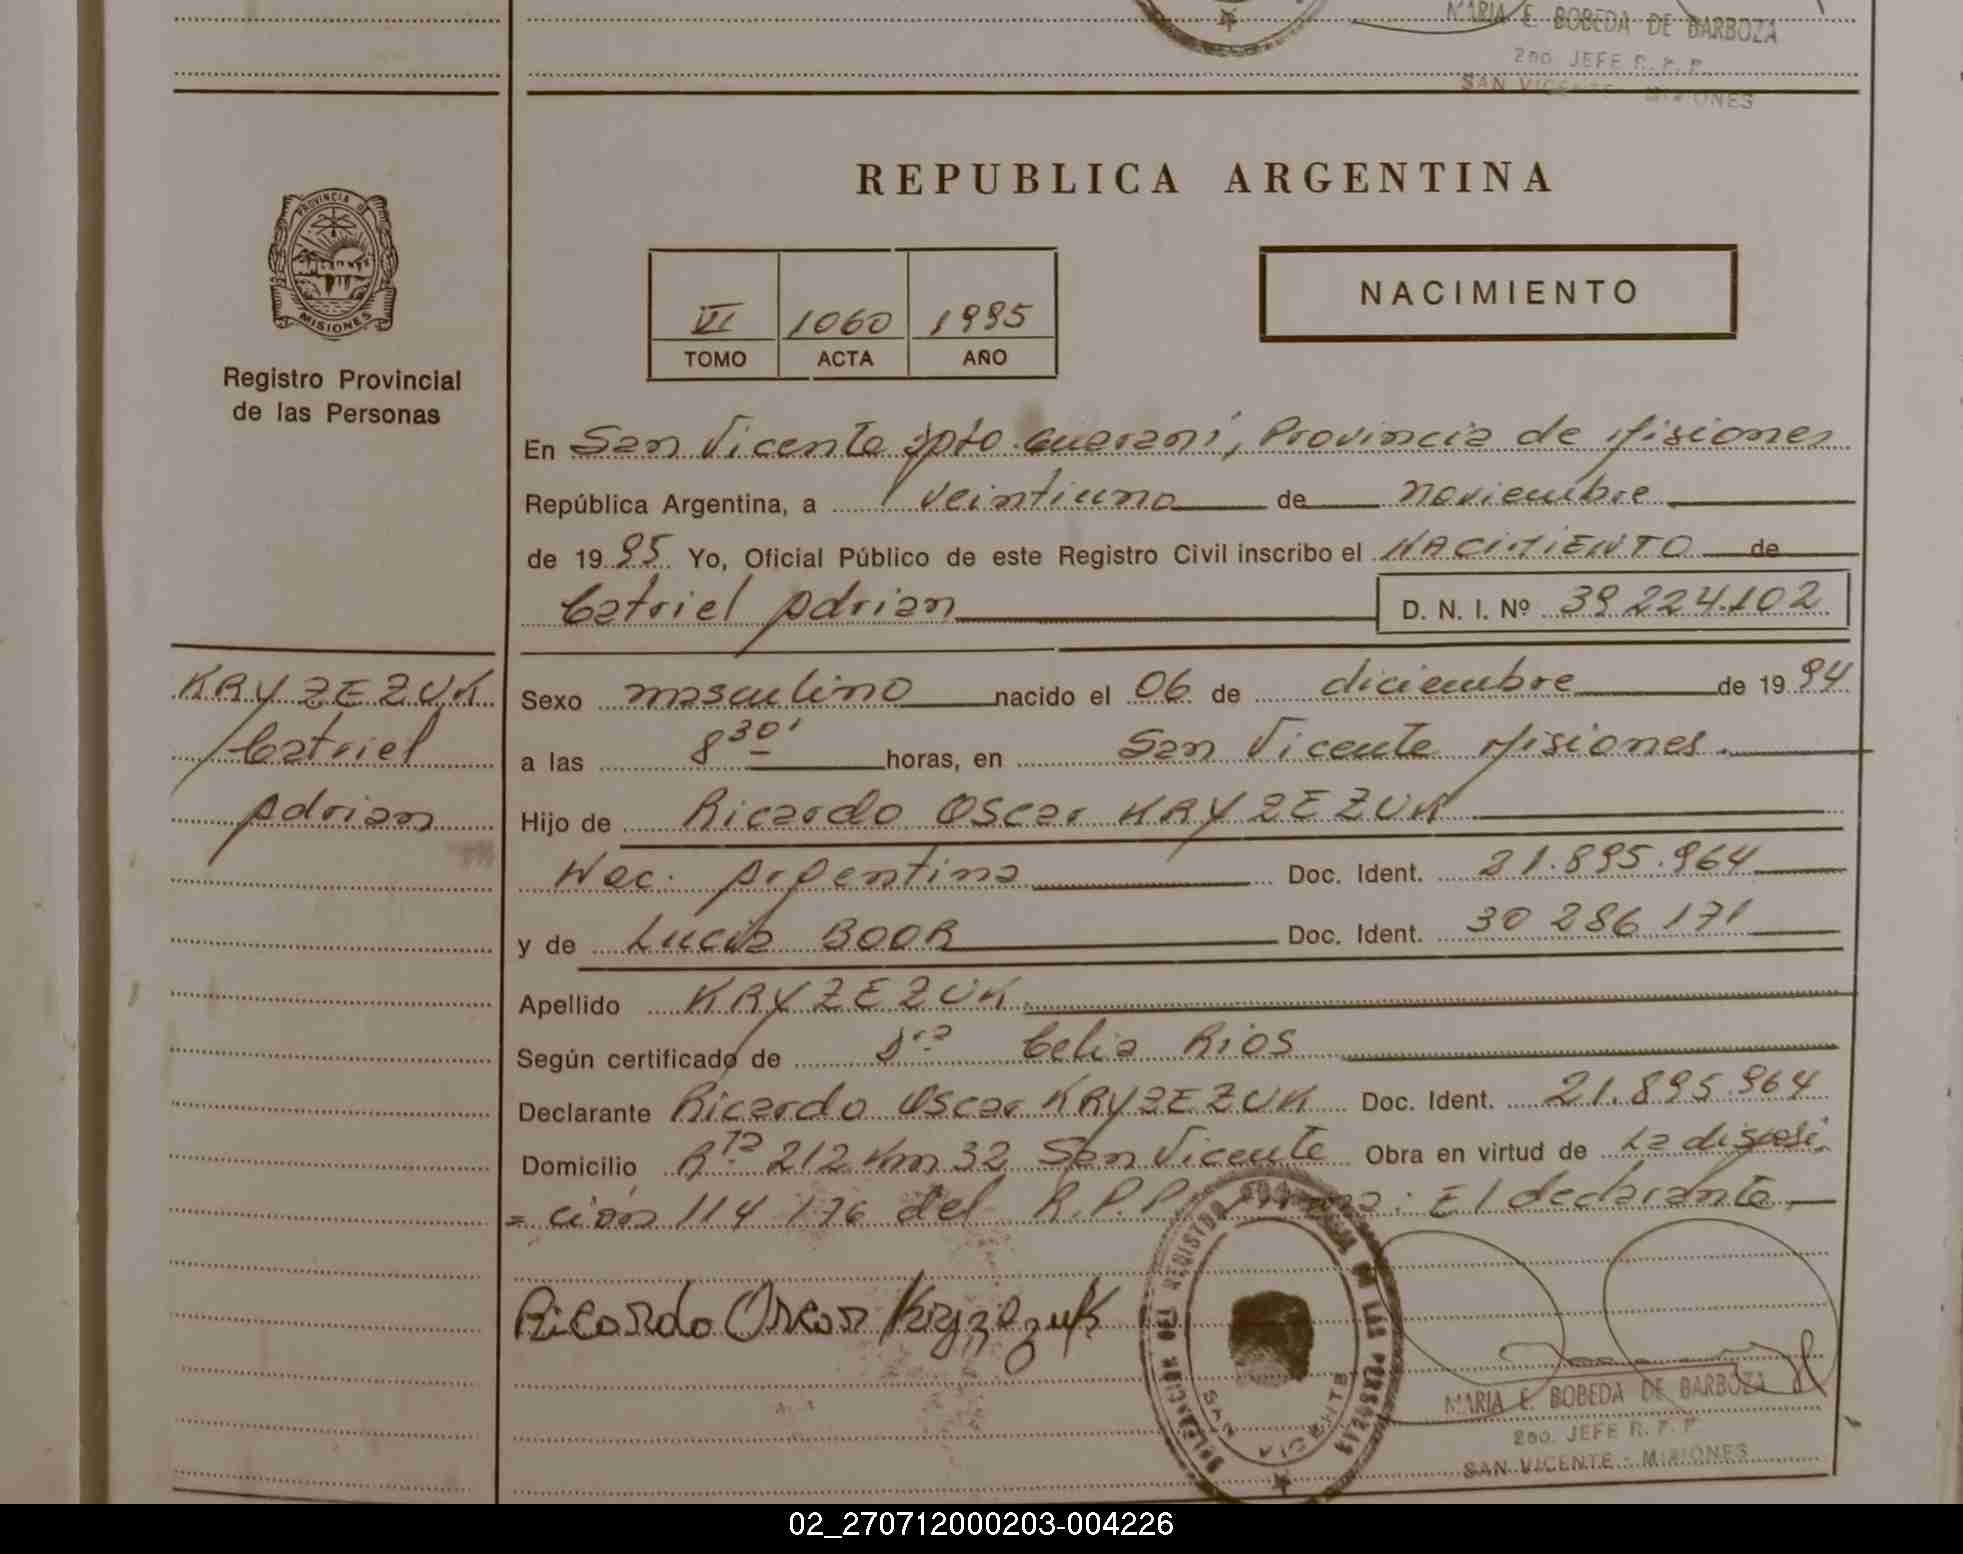 MARIA E. BOBEDA DE BARBOZA
2do. JEFE R. P. P.
SAN VICENTE - MISIONES
REPUBLICA ARGENTINA
PROVINCIA D
MISIONES
Registro Provincial
de las Personas
VI 1060 1995
TOMO ACTA AÑO
NACIMIENTO
En San Vicente Dpto. Guaraní, Provincia de Misiones
República Argentina, a veintiuno de noviembre
de 1995 Yo, Oficial Público de este Registro Civil inscribo el NACIMIENTO de
Catriel Adrian D. N. I. Nº 39 224.102
KRYZEZUK
Catriel
Adrian
Sexo masculino nacido el 06 de diciembre de 1994
a las 8 30' horas, en San Vicente Misiones.
Hijo de Ricardo Oscar KRYZEZUK
Nac. Argentina Doc. Ident. 21.895.964
y de Lucia BOOR Doc. Ident. 30 286 171
Apellido KRYZEZUK
Según certificado de Dra Celia Rios
Declarante Ricardo Oscar KRYZEZUK Doc. Ident. 21.895.964
Domicilio Rta 212 Km 32 San Vicente Obra en virtud de La disposi
= ción 114 176 del R.P.P. El declarante
Ricardo Oscar Kryzezuk
REGISTRO PROVINCIAL DE LAS PERSONAS
SAN VICENTE
MARIA E. BOBEDA DE BARBOZA
2do. JEFE R. P. P
SAN VICENTE - MISIONES
02_270712000203-004226